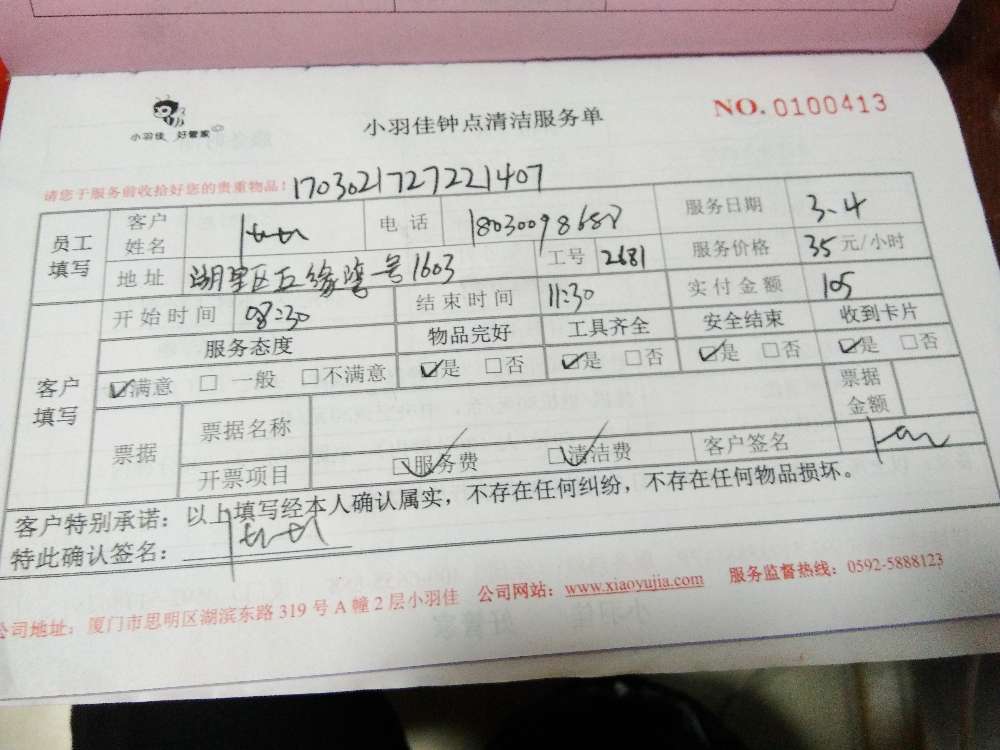 小羽佳 好管家
小羽佳钟点清洁服务单
NO. 0100413
请您于服务前收拾好您的贵重物品! 170302172722 1407
员工填写 客户姓名 电话 服务日期 3.4
地址 湖里区五缘湾 号1603 工号 2681 服务价格 35 元/小时
客户填写 开始时间 08:30 结束时间 11:30 实付金额 105
服务态度 物品完好 工具齐全 安全结束 收到卡片
☑满意 □一般 □不满意 ☑是 □否 ☑是 □否 ☑是 □否 ☑是 □否
票据 票据名称 票据金额
开票项目 ☑服务费 ☑清洁费 客户签名
客户特别承诺：以上填写经本人确认属实，不存在任何纠纷，不存在任何物品损坏。
特此确认签名：
公司地址：厦门市思明区湖滨东路 319 号 A 幢 2 层小羽佳 公司网站：www.xiaoyujia.com 服务监督热线：0592-5888123